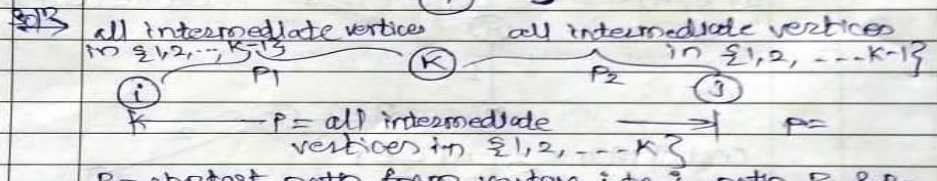 all intermediate vertices all intermediate vertices
in {1,2,..., K-1} in {1,2, ---- K-1}
K
P1 P2
i j
P = all intermediate P=
vertices in {1,2, --- K}